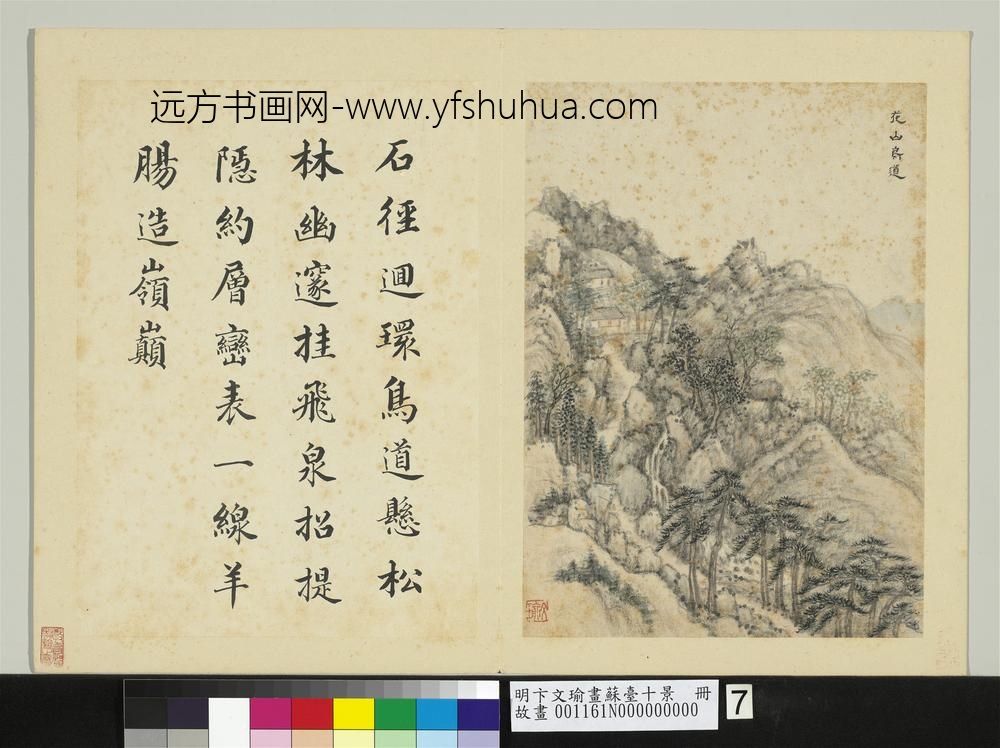 远方书画网-www.yfshuhua.com
花山鳥道
石徑迴環鳥道懸松
林幽邃挂飛泉招提
隱約層巒表一線羊
腸造嶺巔
明卞文瑜畫蘇臺十景 冊
故畫 001161N000000000
7